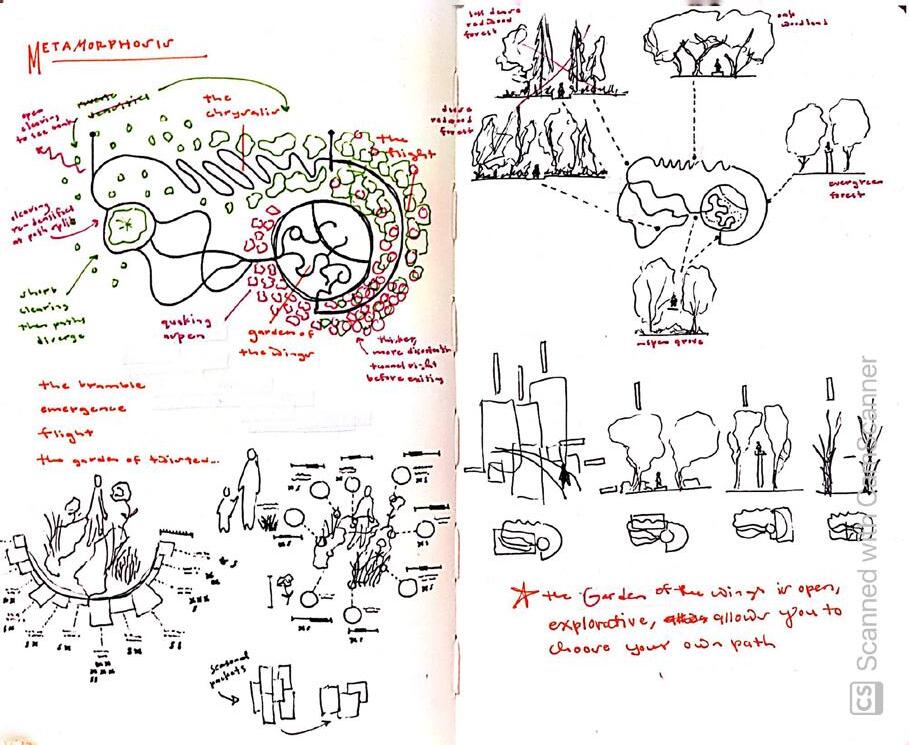 METAMORPHOSIS
open
clearing
to see
the
chrysalis
the
flight
clearing
at path split
short
clearing
then paths
diverge
quaking
aspen
garden of
the wings
thicker,
more discernible
tunnel right
before exiting
the bramble
emergence
flight
the garden of twisted...
seasonal
pockets
less dense
redwood
forest
oak
woodland
dense
redwood
forest
evergreen
forest
aspen grove
the Garden of the wings is open,
explorative, allows you to
choose your own path
CS Scanned with CamScanner